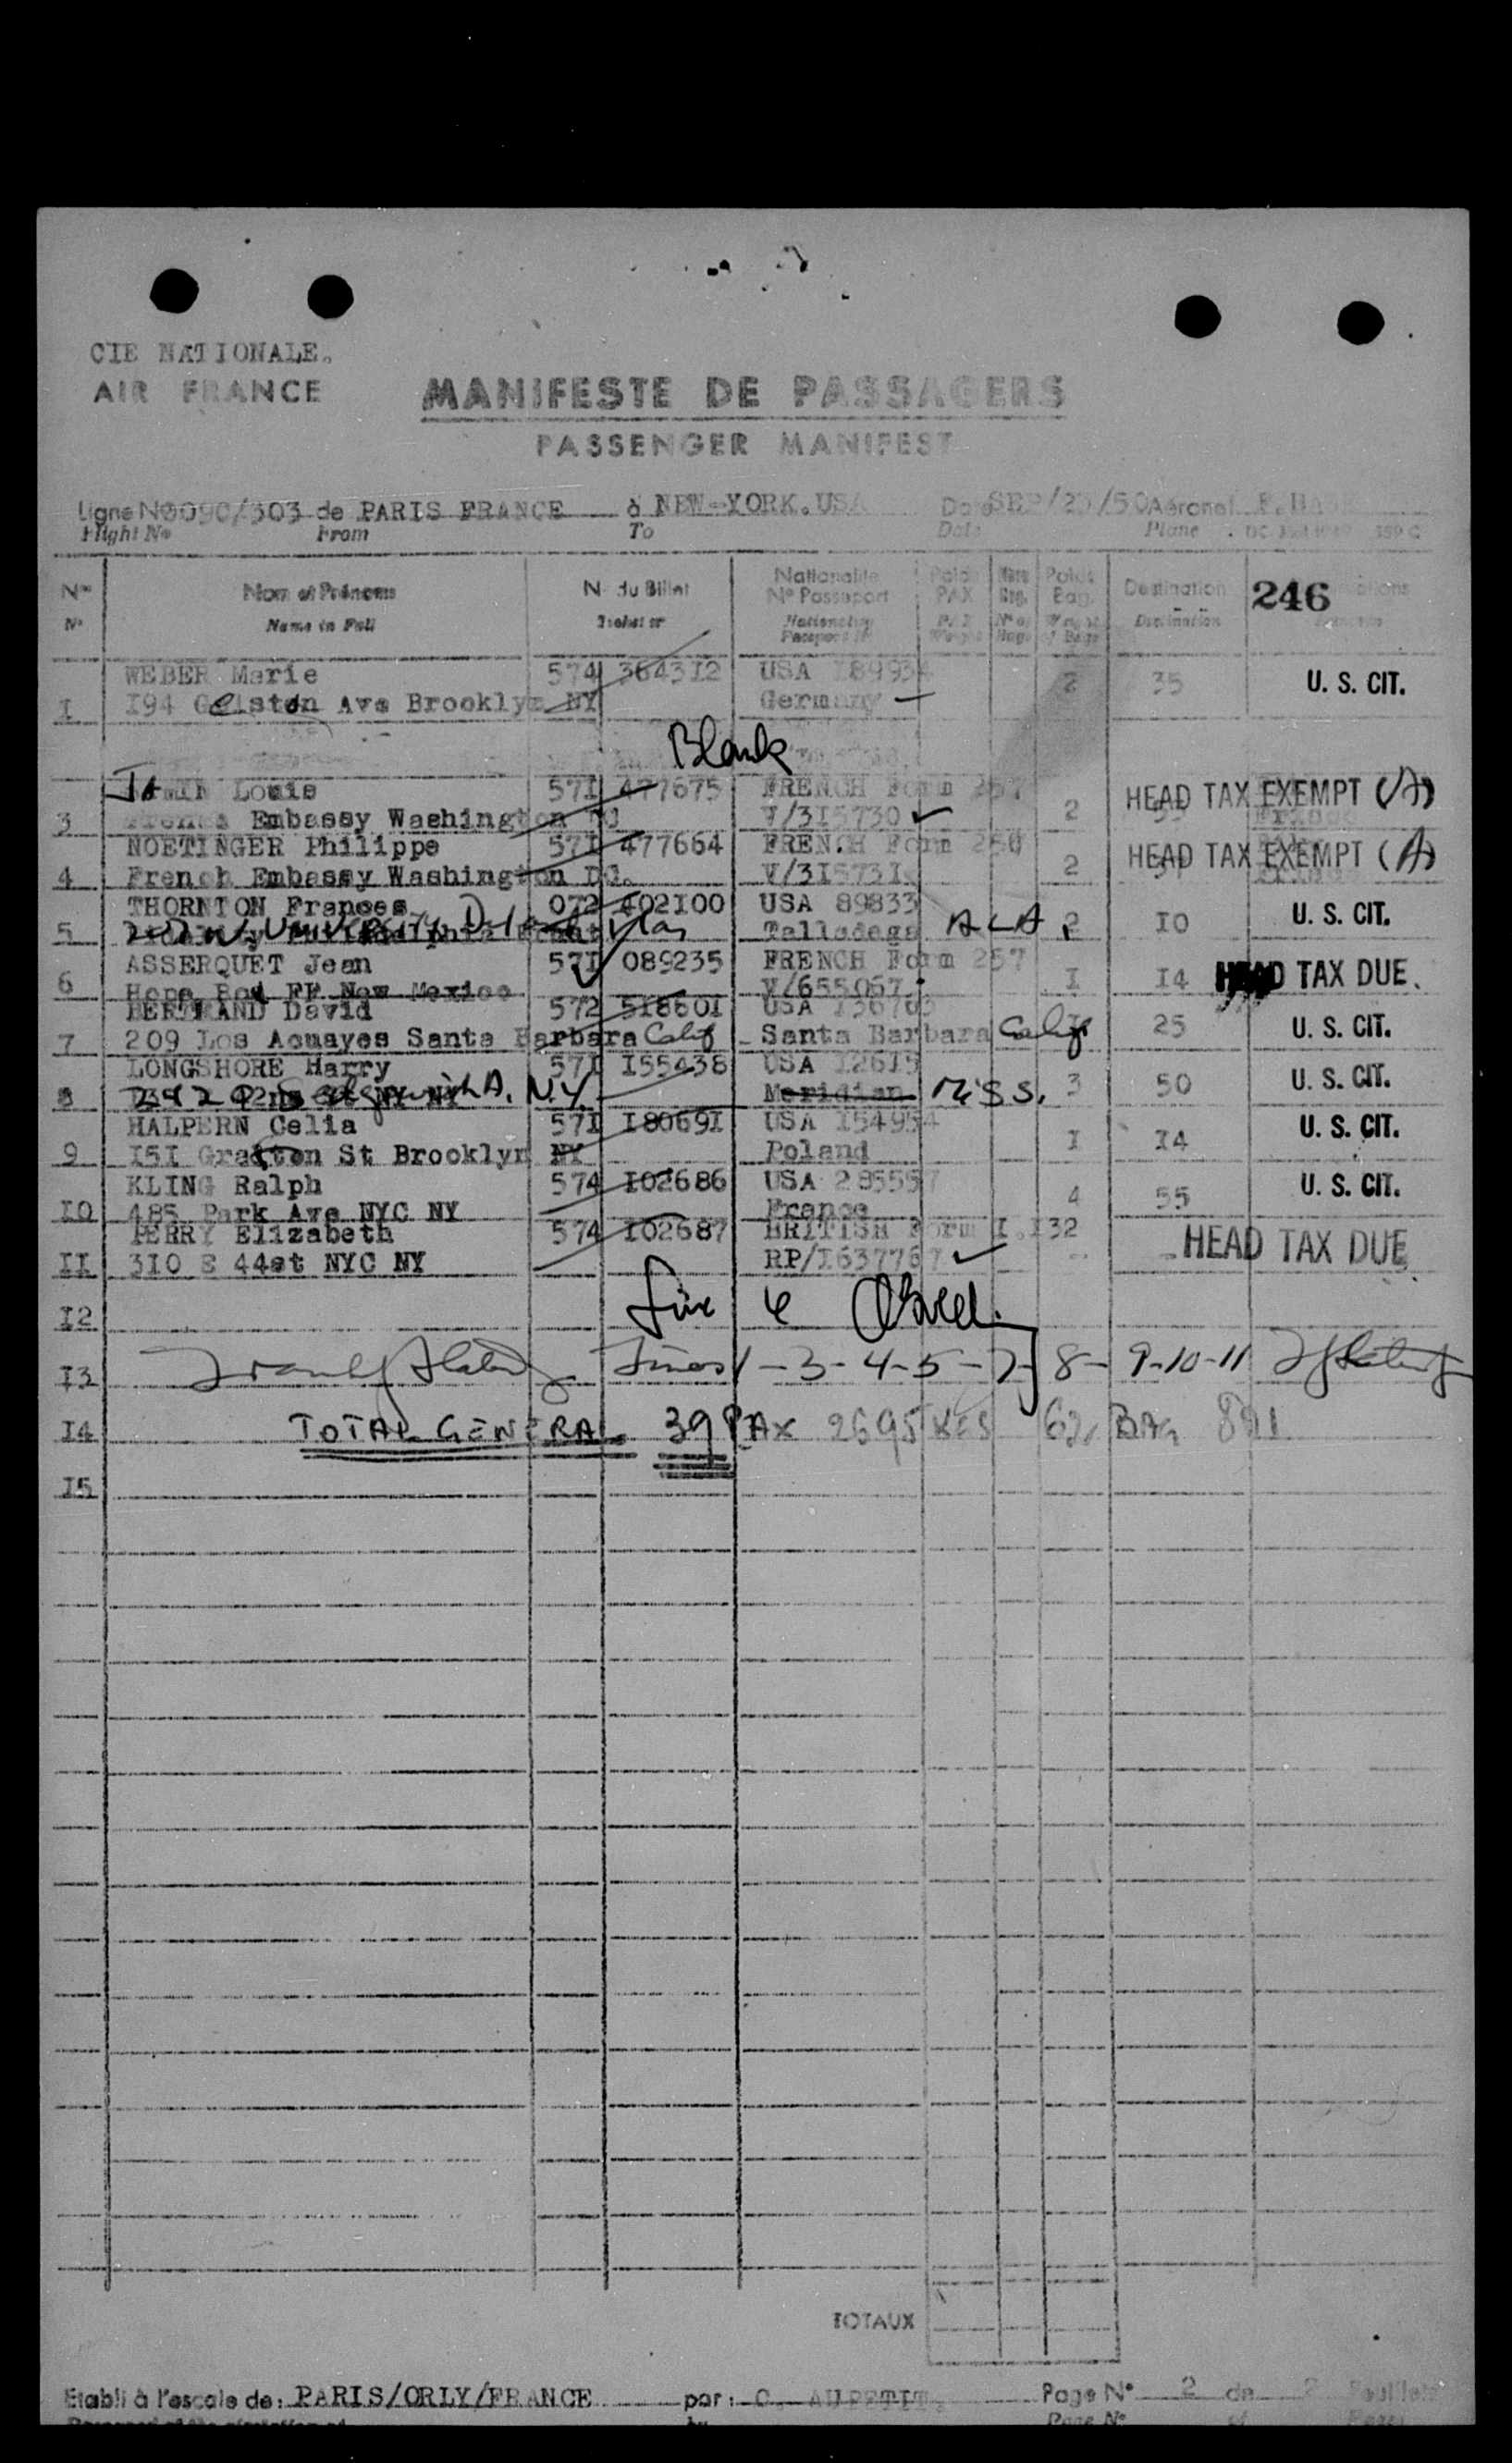 CIE NATIONALE.
AIR FRANCE
MANIFESTE DE PASSAGERS
PASSENGER MANIFEST
Ligne N° 090/303 de PARIS FRANCE à NEW-YORK.USA Date SEP/ /50 Aéronef F.BA
Flight N° From To Date Plane
N° Nom et Prénoms N° du Billet Nationalité N° Passeport Poids PAX Nbre Bag. Poids Bag. Destination 246
N° Name in Full Ticket n° Nationality Passport N° Destination
WEBER Marie 574 364312 USA 18993 2 35 U. S. CIT.
I 194 Gelston Ave Brooklyn NY Germany
Blank
Louis 571 477675 FRENCH Form 257 HEAD TAX EXEMPT (A)
3 French Embassy Washington DC V/315730 2 France
NOETINGER Philippe 571 477664 FRENCH Form HEAD TAX EXEMPT (A)
4 French Embassy Washington DC. V/315731 2
THORNTON Frances 072 402100 USA 89833 2 10 U. S. CIT.
5 Talladega ALA.
ASSERQUET Jean 571 089235 FRENCH Form 257 I 14 HEAD TAX DUE.
6 Hope Rd New Mexico V/655067
BERTRAND David 572 518601 USA 25 U. S. CIT.
7 209 Los Aguayes Santa Barbara Calif Santa Barbara Calif
LONGSHORE Harry 571 155438 USA 12615 3 50 U. S. CIT.
8 N.Y. Meridian MISS.
HALPERN Celia 571 180691 USA 154954 I 14 U. S. CIT.
9 151 Grafton St Brooklyn NY Poland
KLING Ralph 574 102686 USA 28555 4 55 U. S. CIT.
10 485 Park Ave NYC NY France
PERRY Elizabeth 574 102687 BRITISH Form I.132 HEAD TAX DUE
11 310 E 44st NYC NY RP/163776
12 Line 6
13 Lines 1-3-4-5-7-8-9-10-11
14 TOTAL GENERAL 39 PAX 2695 KGS 62 BAG
15
TOTAUX
Etabli à l'escale de: PARIS/ORLY/FRANCE par: C. AUPETIT. Page N° 2 de 2 Feuillets
by Page N° of Pages